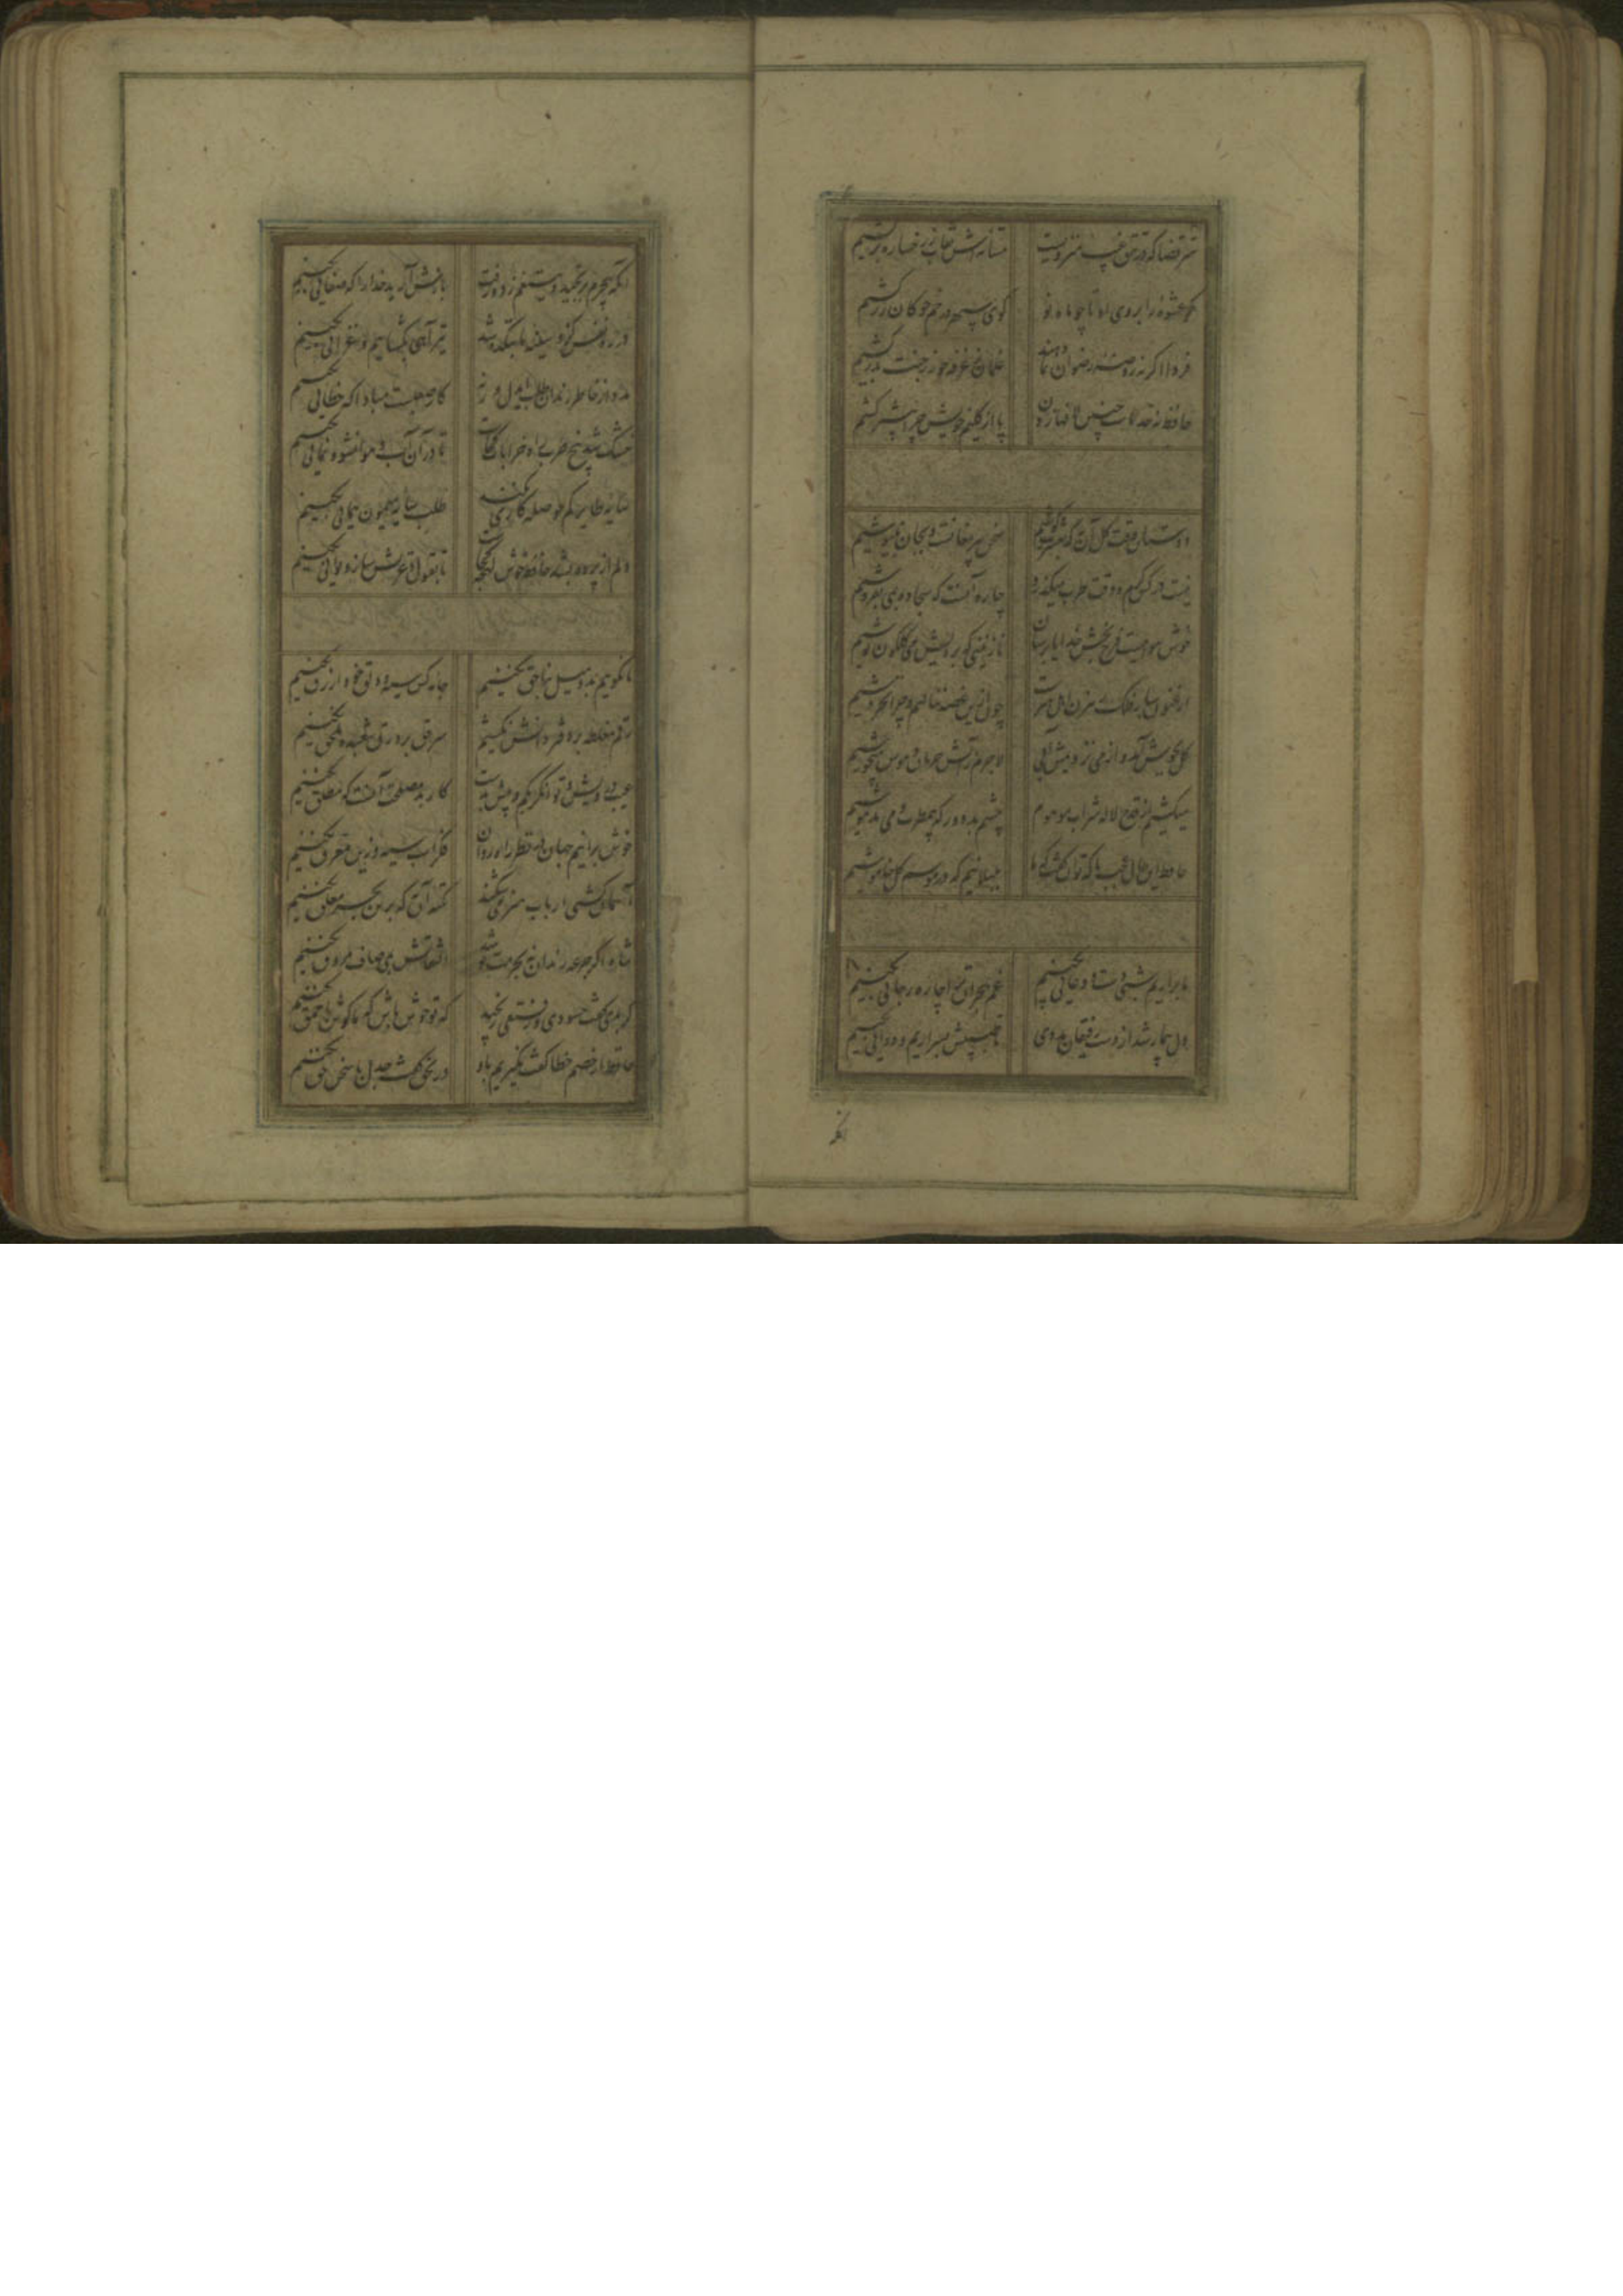 سر قضا که در تتق غیب منزویست مستانه اش نقاب ز رخساره برکشیم
کو عشوه ز ابروی او تا چو ماه نو گوی سپهر در خم چوکان زر کشیم
فردا اگر نه روضه رضوان بما دهند غلمان ز غرفه حور ز جنت بدر کشیم
حافظ نه حد ماست چنین لافها زدن پا از گلیم خویش چرا بیشتر کشیم
دوستان وقت گل آن به که بعشرت کوشیم سخن پیر مغانست و بجان بنیوشیم
نیست در کس کرم و وقت طرب میگذرد چاره آنست که سجاده بمی بفروشیم
خوش هواییست فرح بخش خدایا برسان نازنینی که برویش می گلگون نوشیم
ارغنون ساز فلک رهزن اهل هنرست چون ازین غصه ننالیم و چرا نخروشیم
گل بجوش آمد و از می نزدیمش آبی لاجرم ز آتش حرمان و هوس میجوشیم
میکشیم از قدح لاله شراب موهوم چشم بد دور که بی مطرب و می مدهوشیم
حافظ این حال عجب با که توان گفت که ما بلبلانیم که در موسم گل خاموشیم
ما برآریم شبی دست و دعایی بکنیم غم هجران ترا چاره ز جایی بکنیم
دل بیمار شد از دست رفیقان مددی تا طبیبش بسر آریم و دوایی بکنیم
آنکه
آنکه بیجرم برنجید و بتیغم زد و رفت بازش آرید خدا را که صفایی بکنیم
در ره نفس کزو سینه ما بتکده شد تیر آهی بگشاییم و غزایی بکنیم
مدد از خاطر رندان طلب ای دل ور نه کار صعبست مبادا که خطایی بکنیم
خشک شد بیخ طرب راه خرابات کجاست تا در آن آب و هوا نشو و نمایی بکنیم
سایه طایر کم حوصله کاری نکند طلب سایه میمون همایی بکنیم
دلم از پرده بشد حافظ خوش لهجه کجاست تا بقول و غزلش ساز و نوایی بکنیم
ما نگوییم بد و میل بناحق نکنیم جامه کس سیه و دلق خود ازرق نکنیم
رقم مغلطه بر دفتر دانش نکشیم سر حق بر ورق شعبده ملحق نکنیم
عیب درویش و توانگر بکم و بیش بدست کار بد مصلحت آنست که مطلق نکنیم
خوش برانیم جهان در نظر راه روان فکر اسب سیه و زین مغرق نکنیم
آسمان کشتی ارباب هنر میشکند تکیه آن به که برین بحر معلق نکنیم
شاه اگر جرعه رندان نه بحرمت نوشد التفاتش بمی صاف مروق نکنیم
گر بدی گفت حسودی و رفیقی رنجید گو تو خوش باش که ما گوش باحمق نکنیم
حافظ ار خصم خطا گفت نگیریم برو ور بحق گفت جدل با سخن حق نکنیم